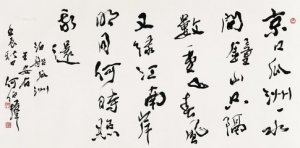 京口瓜洲一水
間鐘山只隔
數重山春風
又綠江南岸
明月何時照
我還
泊船瓜洲
王安石